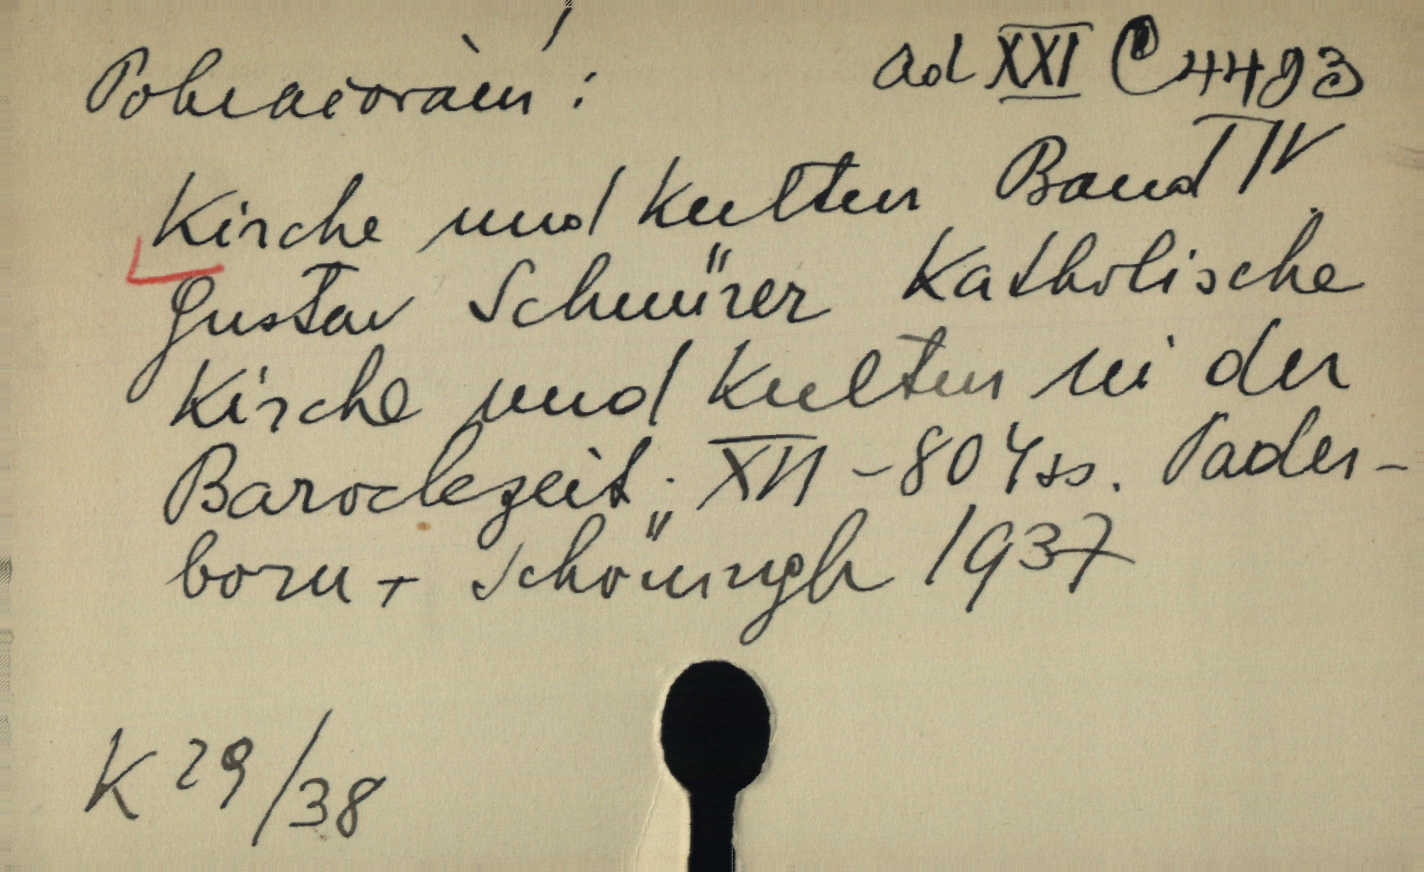 Pokračování: ad XXI C 4493
Kirche und Kultur Band IV.
Gustav Schnürer Katholische
Kirche und Kultur in der
Barockzeit. XVI - 804 ss. Pader-
born + Schöningh 1937
K 29/38